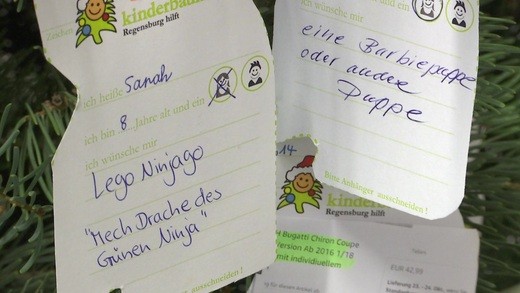 kinderbaum
Regensburg hilft
Zeichen
ich heiße Sarah
ich bin 8 Jahre alt und ein
ich wünsche mir
Lego Ninjago
"Mech Drache des
Grünen Ninja"
ausschneiden!
ich wünsche mir
eine Barbiepuppe
oder andere
Puppe
Bitte Anhänger ausschneiden!
14
kinder
Regensburg hilft
Bugatti Chiron Coupe
Version Ab 2016 1/18
mit individuellem
EUR 42,99